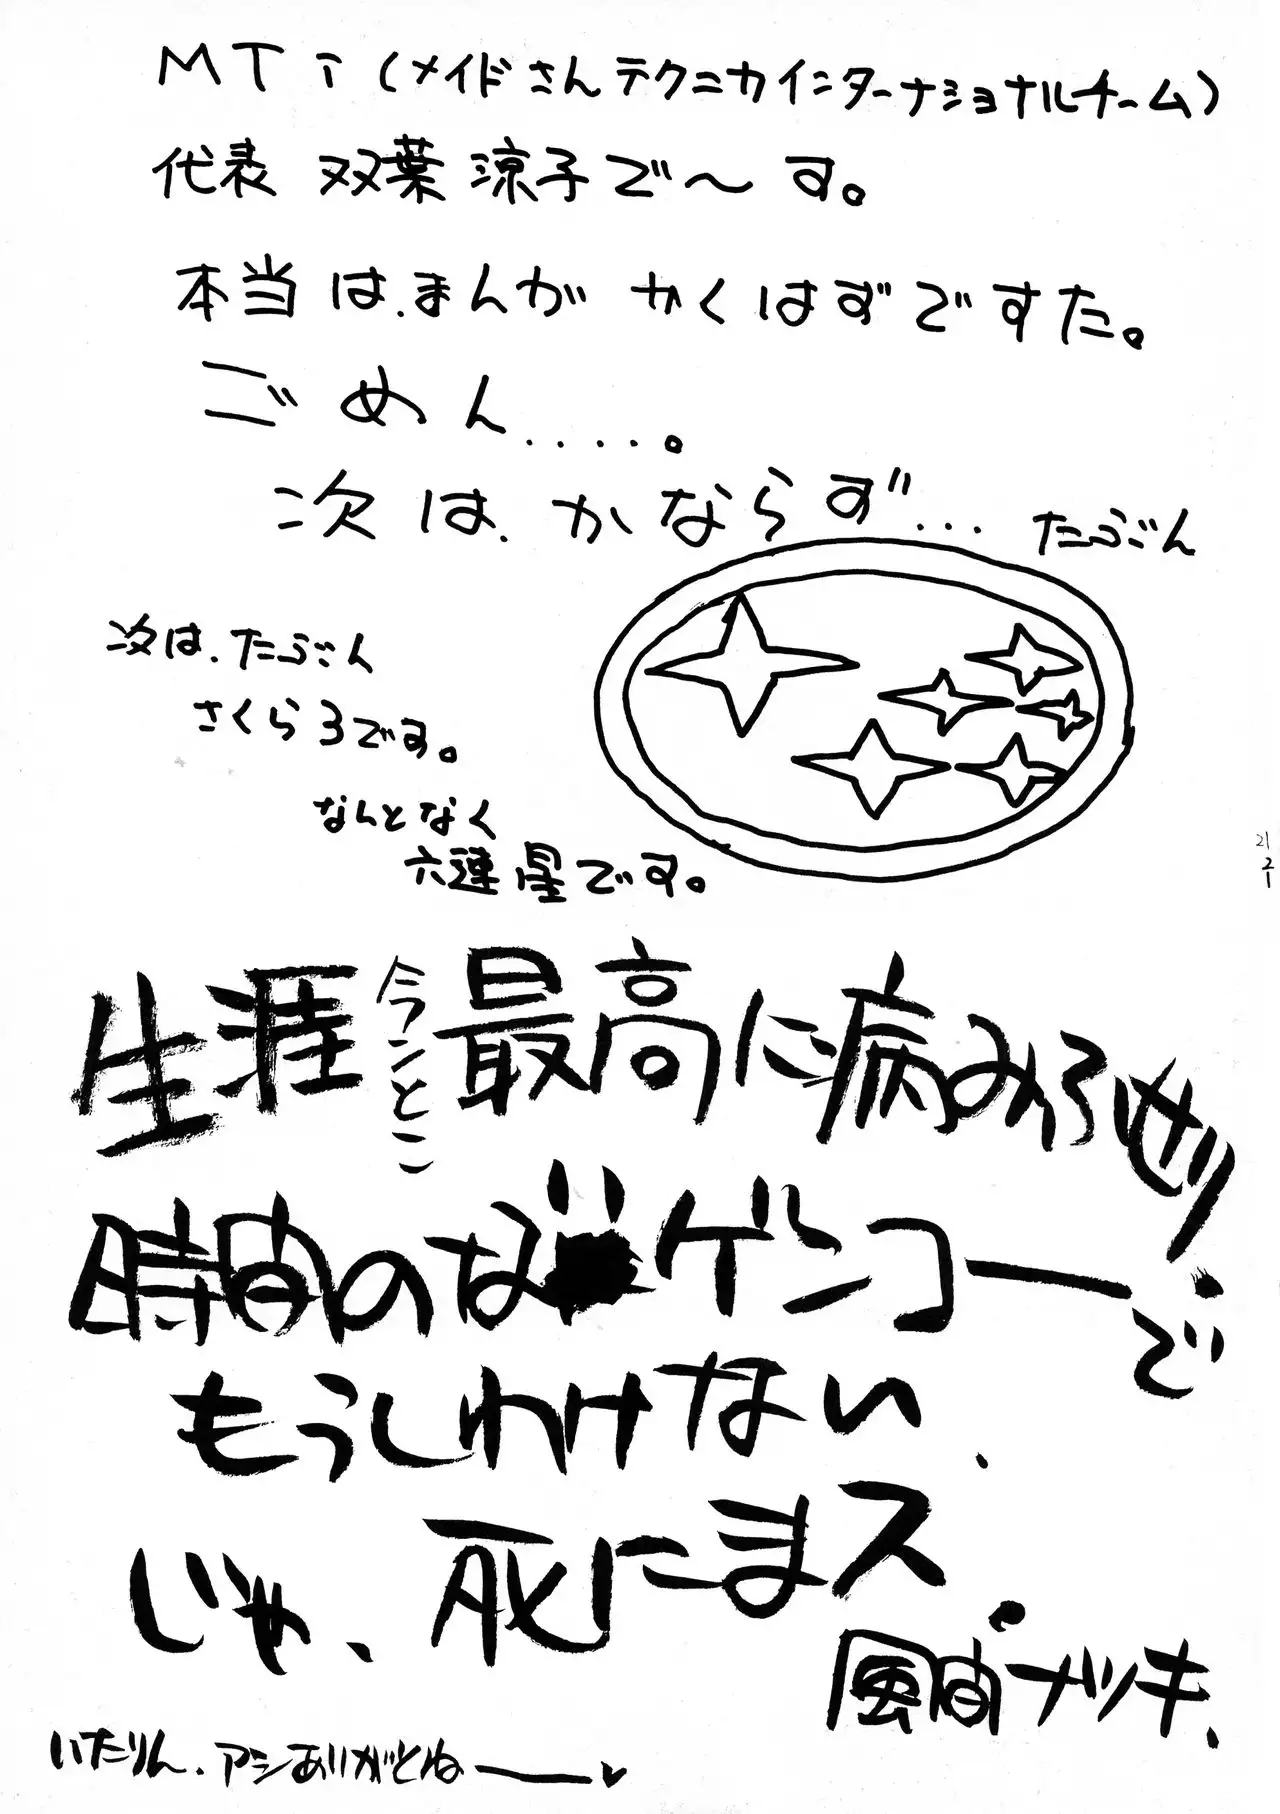 MTi(メイドさんテクニカインターナショナルチーム)
代表 双葉 涼子で〜す。
本当は.まんが かくはずですた。
ごめん.....。
次は.かならず... たぶん
次は.たぶん
さくら3です。
なんとなく
六連星です。
21
生涯 今ンとこ 最高に病みろせり
時間のな ゲンコーで
もうしわけない.
じゃ、死にまス.
風間ナツキ、
いたりん.アシありがとねー